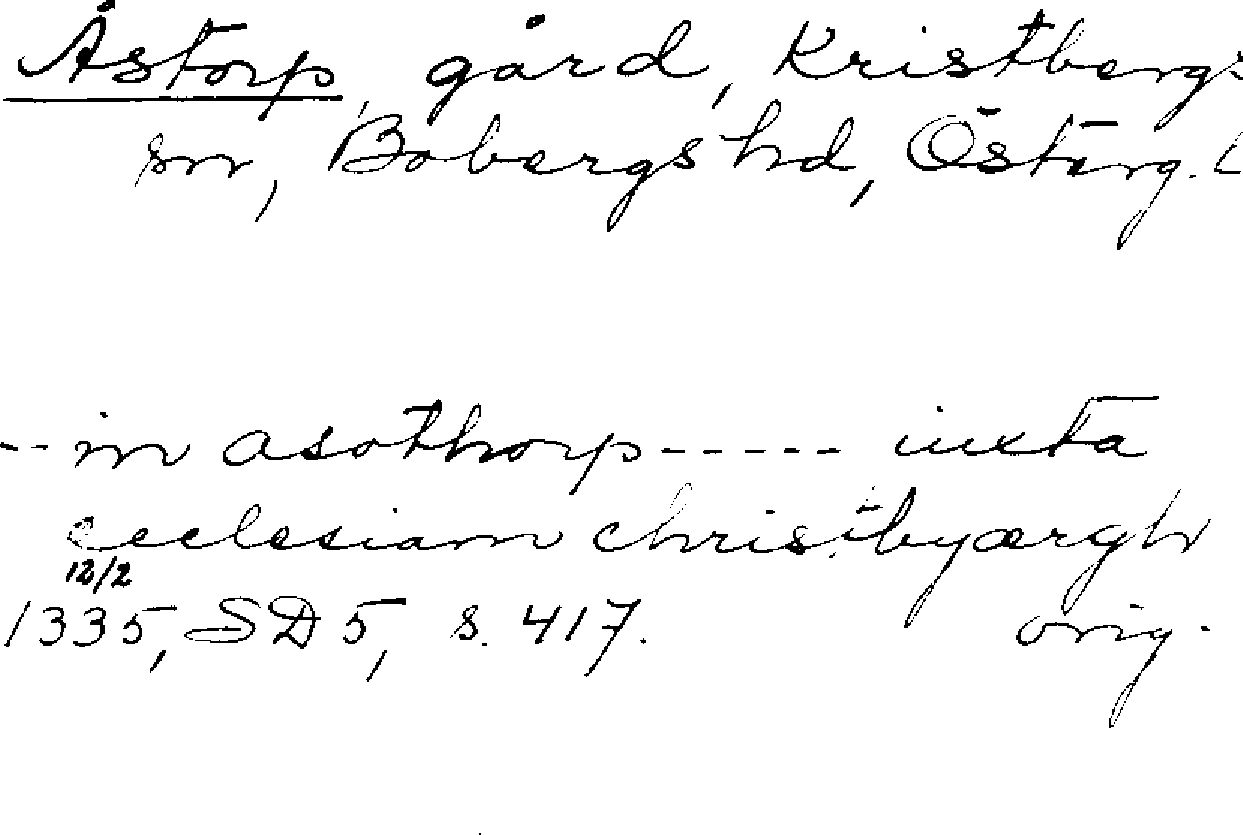 Åstorp, gård, Kristbergs
sn, Bobergs hd, Österg. L
-- in asothorp ----- iuxta
ecclesiam christbyærgh
12/2
1335, SD 5, s. 417. orig.